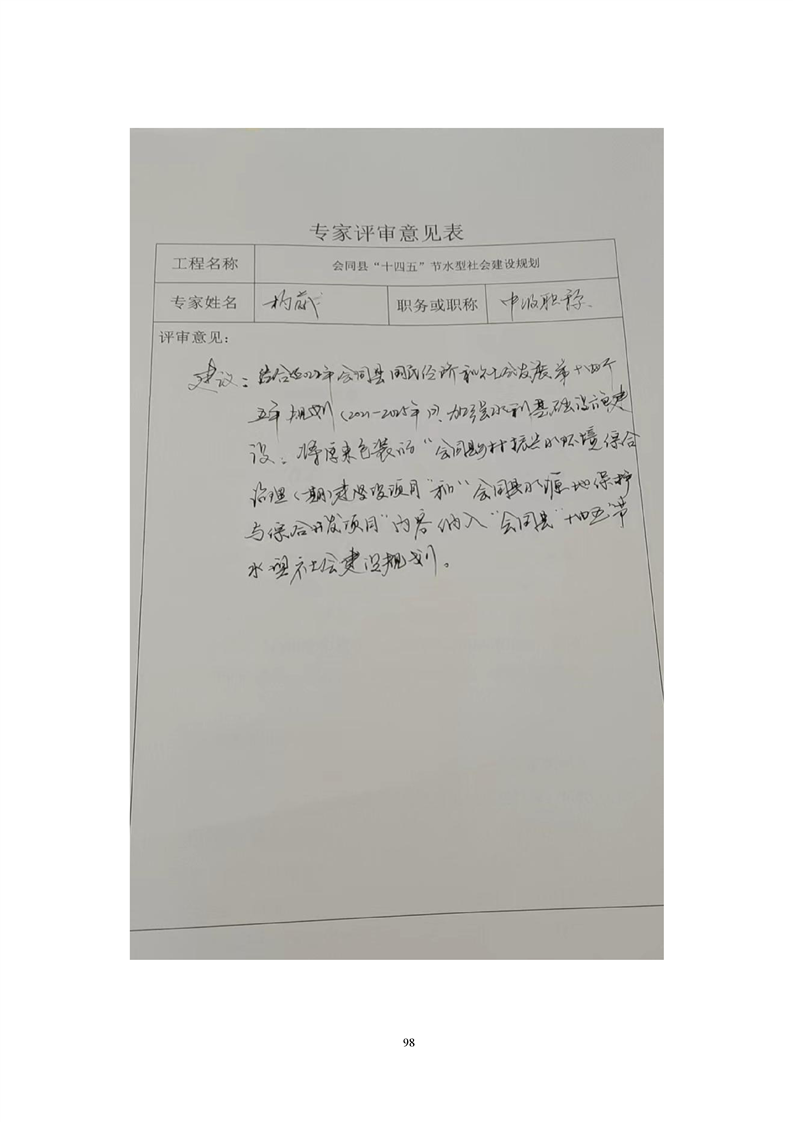 专家评审意见表
工程名称 会同县“十四五”节水型社会建设规划
专家姓名 职务或职称 中级职称
评审意见：
建议：结合2022年会同县国民经济和社会发展第十四个
五年规划（2021-2025年），加强水利基础设施建
设。将原来包装的“会同县乡村振兴水环境综合
治理（期）建设项目”和“会同县水源地保护
与综合开发项目”内容纳入“会同县”十四五节
水型社会建设规划。
98